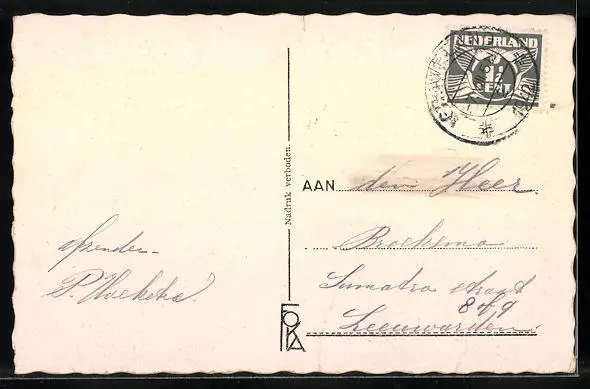 NEDERLAND
1½
CENT
Nadruk verboden.
AAN den Heer
Broeksma
Sumatra straat
8 of 9
Leeuwarden
afzender
FOKA